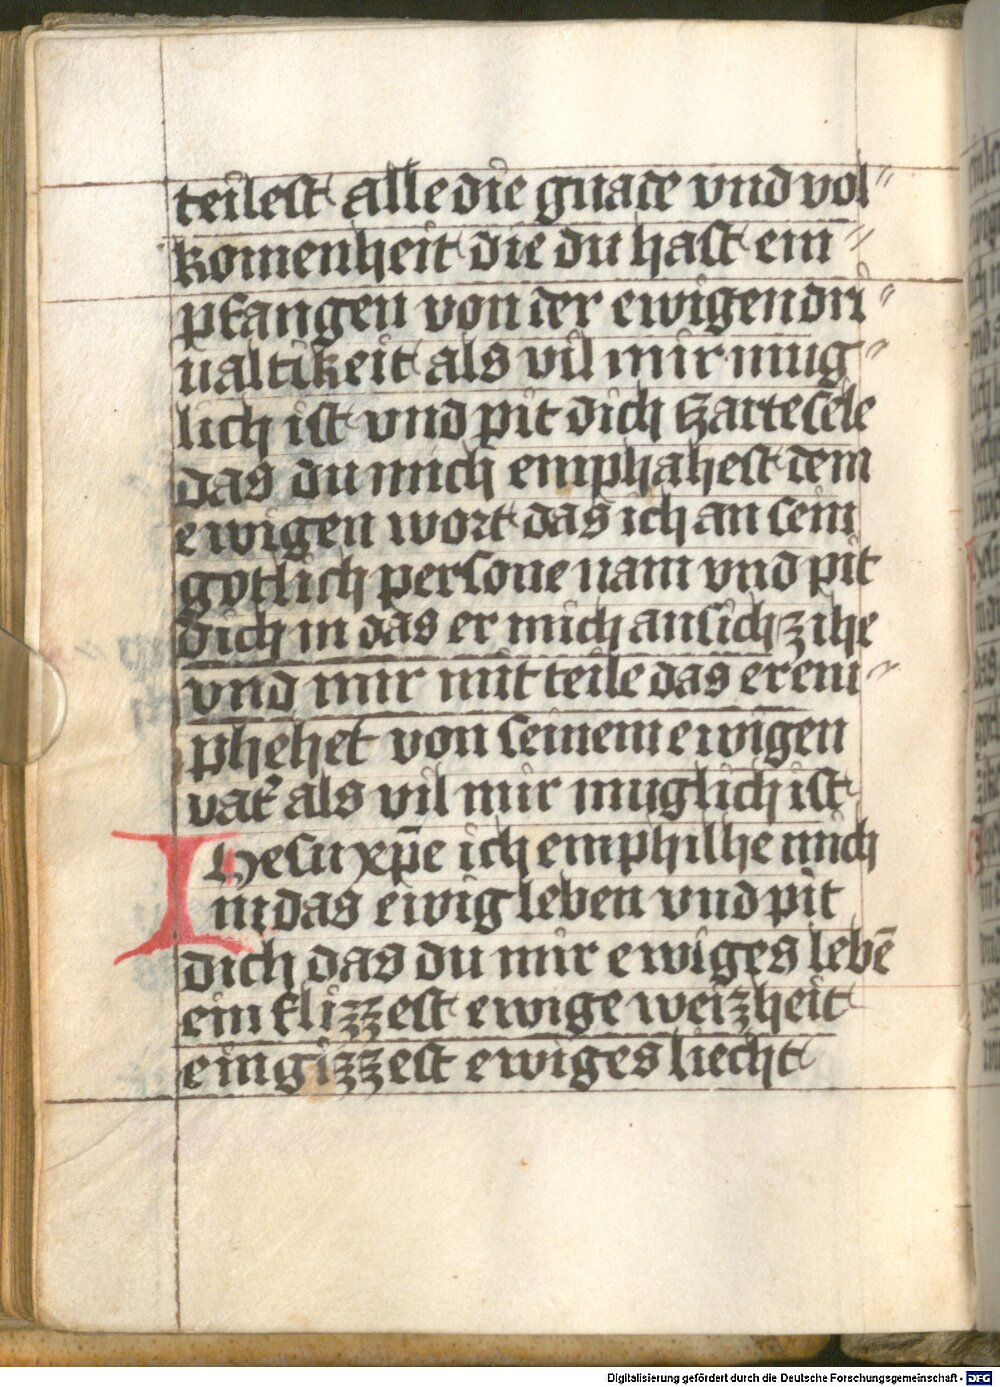 teilest alle die gnade vnd vol〃
komenheit die du hast ein〃
pfangen von der ewigen dri〃
ualtikeit als vil mir mug〃
lich ist vnd pit dich zarte sele
das du mich emphahest dem
ewigen wort das ich an sein
gotlich persone nam vnd pit
dich in das er mich an sich zihe
vnd mir mit teile das er em〃
phehet von seinem ewigen
vat᾽ als vil mir muglich ist
Ihesu xp̄e ich emphilhe mich
in das ewig leben vnd pit
dich das du mir ewiges lebē
ein flizzest ewige weizheit
ein gizzest ewiges liecht
Digitalisierung gefördert durch die Deutsche Forschungsgemeinschaft - DFG